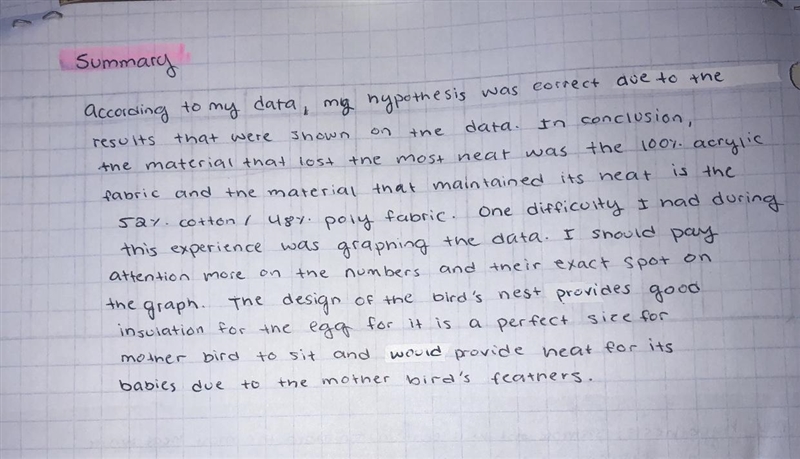 Summary
According to my data, my hypothesis was correct due to the
results that were shown on the data. In conclusion,
the material that lost the most heat was the 100% acrylic
fabric and the material that maintained its heat is the
52% cotton / 48% poly fabric. One difficulty I had during
this experience was graphing the data. I should pay
attention more on the numbers and their exact spot on
the graph. The design of the bird's nest provides good
insulation for the egg for it is a perfect size for
mother bird to sit and would provide heat for its
babies due to the mother bird's feathers.